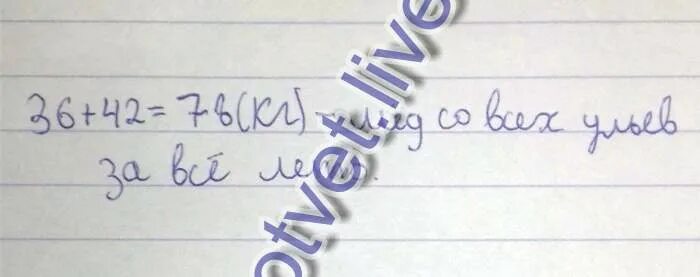 36+42=78(кг) - мёд со всех ульев
за всё лето.
otvet.live